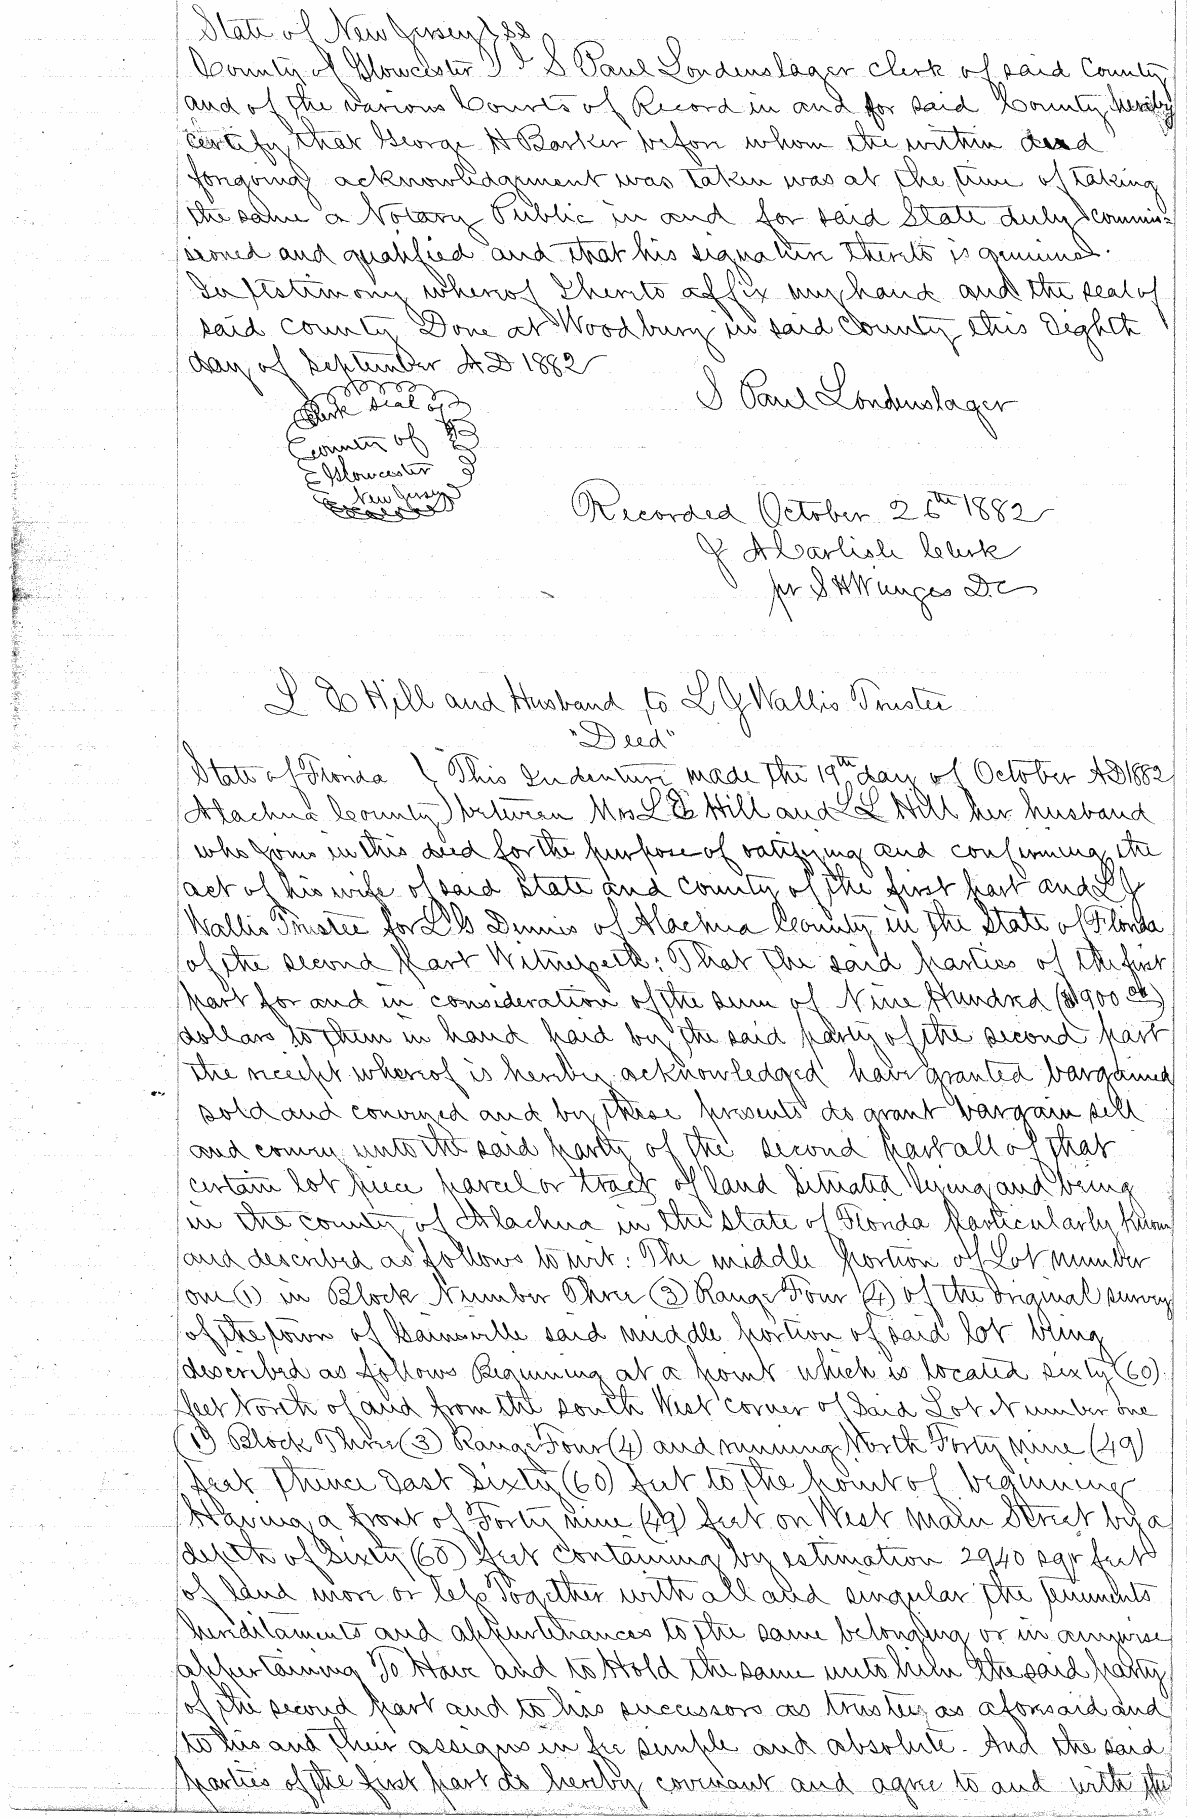 State of New Jersey } SS
County of Gloucester } I S Paul Londenslager clerk of said County
and of the various Courts of Record in and for said County hereby
certify that George H Barker before whom the within deed
foregoing acknowledgment was taken was at the time of taking
the same a Notary Public in and for said State duly commis-
sioned and qualified and that his signature thereto is genuine.
In testimony whereof I hereto affix my hand and the seal of
said county Done at Woodbury in said County this Eighth
day of September AD 1882
S Paul Londenslager
Clerk seal of
County of
Gloucester
New Jersey
Recorded October 26th 1882
J A Carlisle Clerk
pr S H Wienges D.C
L E Hill and Husband to L G Wallis Trustee
"Deed"
State of Florida } This Indenture made the 19th day of October AD 1882
Alachua County } between Mrs L E Hill and L L Hill her husband
who joins in this deed for the purpose of ratifying and confirming the
act of his wife of said State and county of the first part and L G
Wallis Trustee for L G Dennis of Alachua County in the State of Florida
of the second part Witnesseth: That the said parties of the first
part for and in consideration of the sum of Nine Hundred ($900 00)
dollars to them in hand paid by the said party of the second part
the receipt whereof is hereby acknowledged have granted bargained
sold and conveyed and by these presents do grant bargain sell
and convey unto the said party of the second part all of that
certain lot piece parcel or tract of land situated lying and being
in the county of Alachua in the State of Florida particularly known
and described as follows to wit: The middle portion of Lot number
one (1) in Block Number Three (3) Range Four (4) of the original survey
of the town of Gainsville said middle portion of said lot being
described as follows Beginning at a point which is located sixty (60)
feet North of and from the South West corner of Said Lot Number one
(1) Block Three (3) Range Four (4) and running North Forty nine (49)
feet Thence East Sixty (60) feet to the point of beginning
Having a front of Forty nine (49) feet on West Main Street by a
depth of Sixty (60) feet containing by estimation 2940 sqr feet
of land more or less Together with all and singular the tenements
hereditaments and appurtenances to the same belonging or in anywise
appertaining To Have and to Hold the same unto him the said party
of the second part and to his successors as trustee as aforesaid and
to his and their assigns in fee simple and absolute. And the said
parties of the first part do hereby covenant and agree to and with the